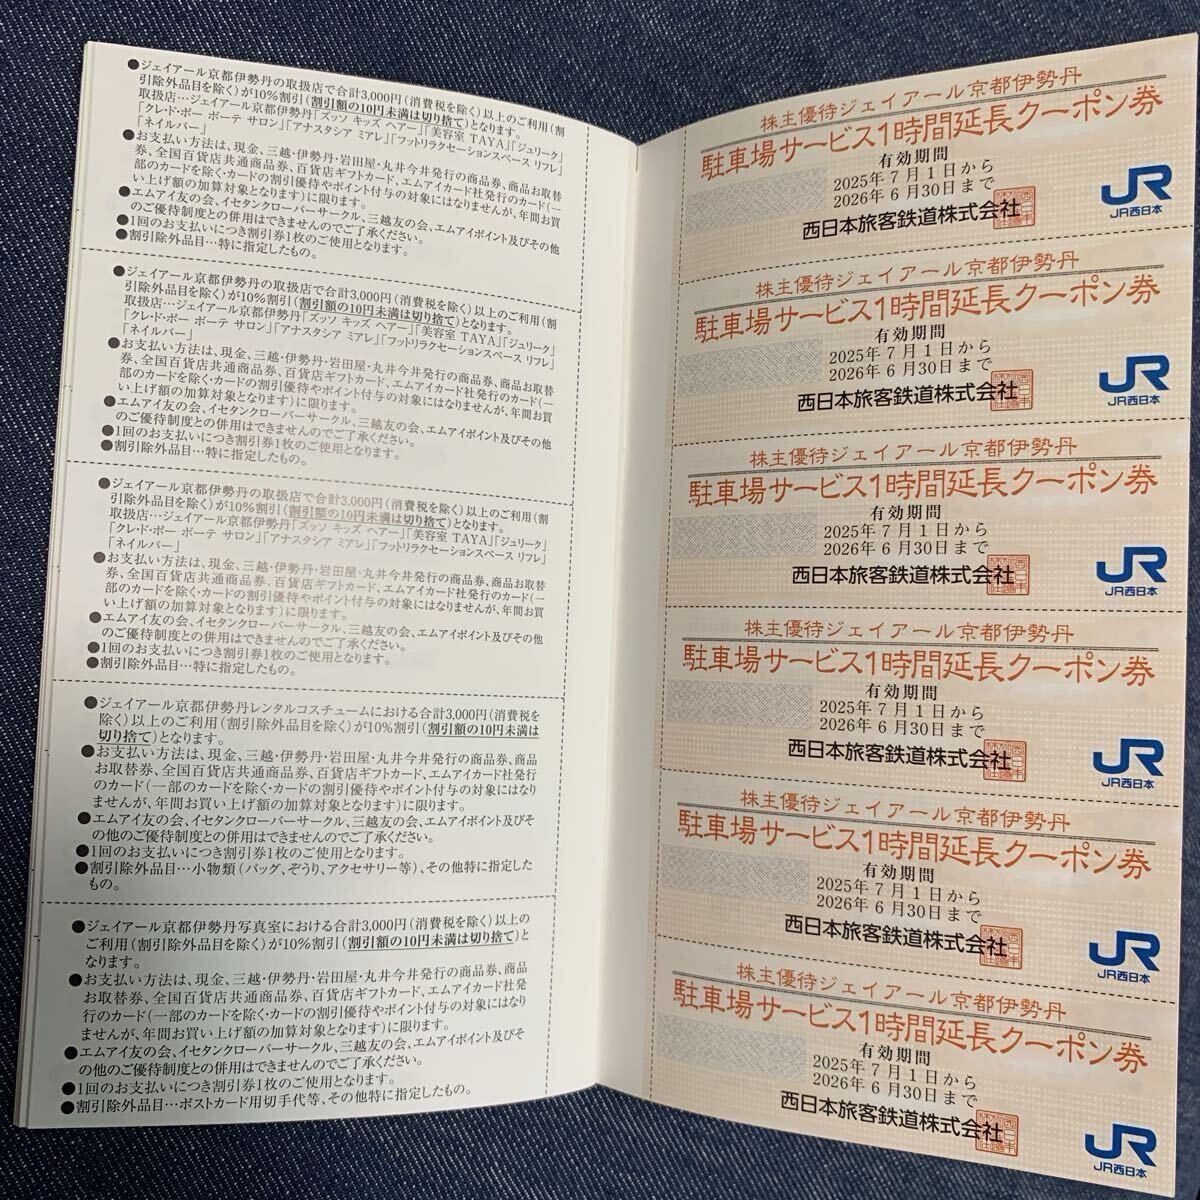 ●ジェイアール京都伊勢丹の取扱店で合計3,000円(消費税を除く)以上のご利用(割
引除外品目を除く)が10%割引(割引額の10円未満は切り捨て)となります。
取扱店…ジェイアール京都伊勢丹「ズッソ キッズ ヘアー」「美容室 TAYA」「ジュリーク」
「クレ・ド・ポー ボーテ サロン」「アナスタシア ミアレ」「フットリラクセーションスペース リフレ」
「ネイルバー」
●お支払い方法は、現金、三越・伊勢丹・岩田屋・丸井今井発行の商品券、商品お取替
券、全国百貨店共通商品券、百貨店ギフトカード、エムアイカード社発行のカード(一
部のカードを除く・カードの割引優待やポイント付与の対象にはなりませんが、年間お買
い上げ額の加算対象となります)に限ります。
●エムアイ友の会、イセタンクローバーサークル、三越友の会、エムアイポイント及びその他
のご優待制度との併用はできませんのでご了承ください。
●1回のお支払いにつき割引券1枚のご使用となります。
●割引除外品目…特に指定したもの。
●ジェイアール京都伊勢丹の取扱店で合計3,000円(消費税を除く)以上のご利用(割
引除外品目を除く)が10%割引(割引額の10円未満は切り捨て)となります。
取扱店…ジェイアール京都伊勢丹「ズッソ キッズ ヘアー」「美容室 TAYA」「ジュリーク」
「クレ・ド・ポー ボーテ サロン」「アナスタシア ミアレ」「フットリラクセーションスペース リフレ」
「ネイルバー」
●お支払い方法は、現金、三越・伊勢丹・岩田屋・丸井今井発行の商品券、商品お取替
券、全国百貨店共通商品券、百貨店ギフトカード、エムアイカード社発行のカード(一
部のカードを除く・カードの割引優待やポイント付与の対象にはなりませんが、年間お買
い上げ額の加算対象となります)に限ります。
●エムアイ友の会、イセタンクローバーサークル、三越友の会、エムアイポイント及びその他
のご優待制度との併用はできませんのでご了承ください。
●1回のお支払いにつき割引券1枚のご使用となります。
●割引除外品目…特に指定したもの。
●ジェイアール京都伊勢丹の取扱店で合計3,000円(消費税を除く)以上のご利用(割
引除外品目を除く)が10%割引(割引額の10円未満は切り捨て)となります。
取扱店…ジェイアール京都伊勢丹「ズッソ キッズ ヘアー」「美容室 TAYA」「ジュリーク」
「クレ・ド・ポー ボーテ サロン」「アナスタシア ミアレ」「フットリラクセーションスペース リフレ」
「ネイルバー」
●お支払い方法は、現金、三越・伊勢丹・岩田屋・丸井今井発行の商品券、商品お取替
券、全国百貨店共通商品券、百貨店ギフトカード、エムアイカード社発行のカード(一
部のカードを除く・カードの割引優待やポイント付与の対象にはなりませんが、年間お買
い上げ額の加算対象となります)に限ります。
●エムアイ友の会、イセタンクローバーサークル、三越友の会、エムアイポイント及びその他
のご優待制度との併用はできませんのでご了承ください。
●1回のお支払いにつき割引券1枚のご使用となります。
●割引除外品目…特に指定したもの。
●ジェイアール京都伊勢丹レンタルコスチュームにおける合計3,000円(消費税を
除く)以上のご利用(割引除外品目を除く)が10%割引(割引額の10円未満は
切り捨て)となります。
●お支払い方法は、現金、三越・伊勢丹・岩田屋・丸井今井発行の商品券、商品
お取替券、全国百貨店共通商品券、百貨店ギフトカード、エムアイカード社発行
のカード(一部のカードを除く・カードの割引優待やポイント付与の対象にはなり
ませんが、年間お買い上げ額の加算対象となります)に限ります。
●エムアイ友の会、イセタンクローバーサークル、三越友の会、エムアイポイント及びそ
の他のご優待制度との併用はできませんのでご了承ください。
●1回のお支払いにつき割引券1枚のご使用となります。
●割引除外品目…小物類(バッグ、ぞうり、アクセサリー等)、その他特に指定した
もの。
●ジェイアール京都伊勢丹写真室における合計3,000円(消費税を除く)以上の
ご利用(割引除外品目を除く)が10%割引(割引額の10円未満は切り捨て)と
なります。
●お支払い方法は、現金、三越・伊勢丹・岩田屋・丸井今井発行の商品券、商品
お取替券、全国百貨店共通商品券、百貨店ギフトカード、エムアイカード社発
行のカード(一部のカードを除く・カードの割引優待やポイント付与の対象にはなり
ませんが、年間お買い上げ額の加算対象となります)に限ります。
●エムアイ友の会、イセタンクローバーサークル、三越友の会、エムアイポイント及びそ
の他のご優待制度との併用はできませんのでご了承ください。
●1回のお支払いにつき割引券1枚のご使用となります。
●割引除外品目…ポストカード用切手代等、その他特に指定したもの。
株主優待ジェイアール京都伊勢丹
駐車場サービス1時間延長クーポン券
有効期間
2025年7月1日から
2026年6月30日まで
西日本旅客鉄道株式会社
JR
JR西日本
株主優待ジェイアール京都伊勢丹
駐車場サービス1時間延長クーポン券
有効期間
2025年7月1日から
2026年6月30日まで
西日本旅客鉄道株式会社
JR
JR西日本
株主優待ジェイアール京都伊勢丹
駐車場サービス1時間延長クーポン券
有効期間
2025年7月1日から
2026年6月30日まで
西日本旅客鉄道株式会社
JR
JR西日本
株主優待ジェイアール京都伊勢丹
駐車場サービス1時間延長クーポン券
有効期間
2025年7月1日から
2026年6月30日まで
西日本旅客鉄道株式会社
JR
JR西日本
株主優待ジェイアール京都伊勢丹
駐車場サービス1時間延長クーポン券
有効期間
2025年7月1日から
2026年6月30日まで
西日本旅客鉄道株式会社
JR
JR西日本
株主優待ジェイアール京都伊勢丹
駐車場サービス1時間延長クーポン券
有効期間
2025年7月1日から
2026年6月30日まで
西日本旅客鉄道株式会社
JR
JR西日本